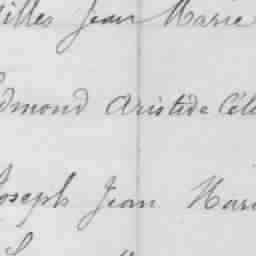 illes Jean Marie
dmond Aristide Cél
Joseph Jean Mar